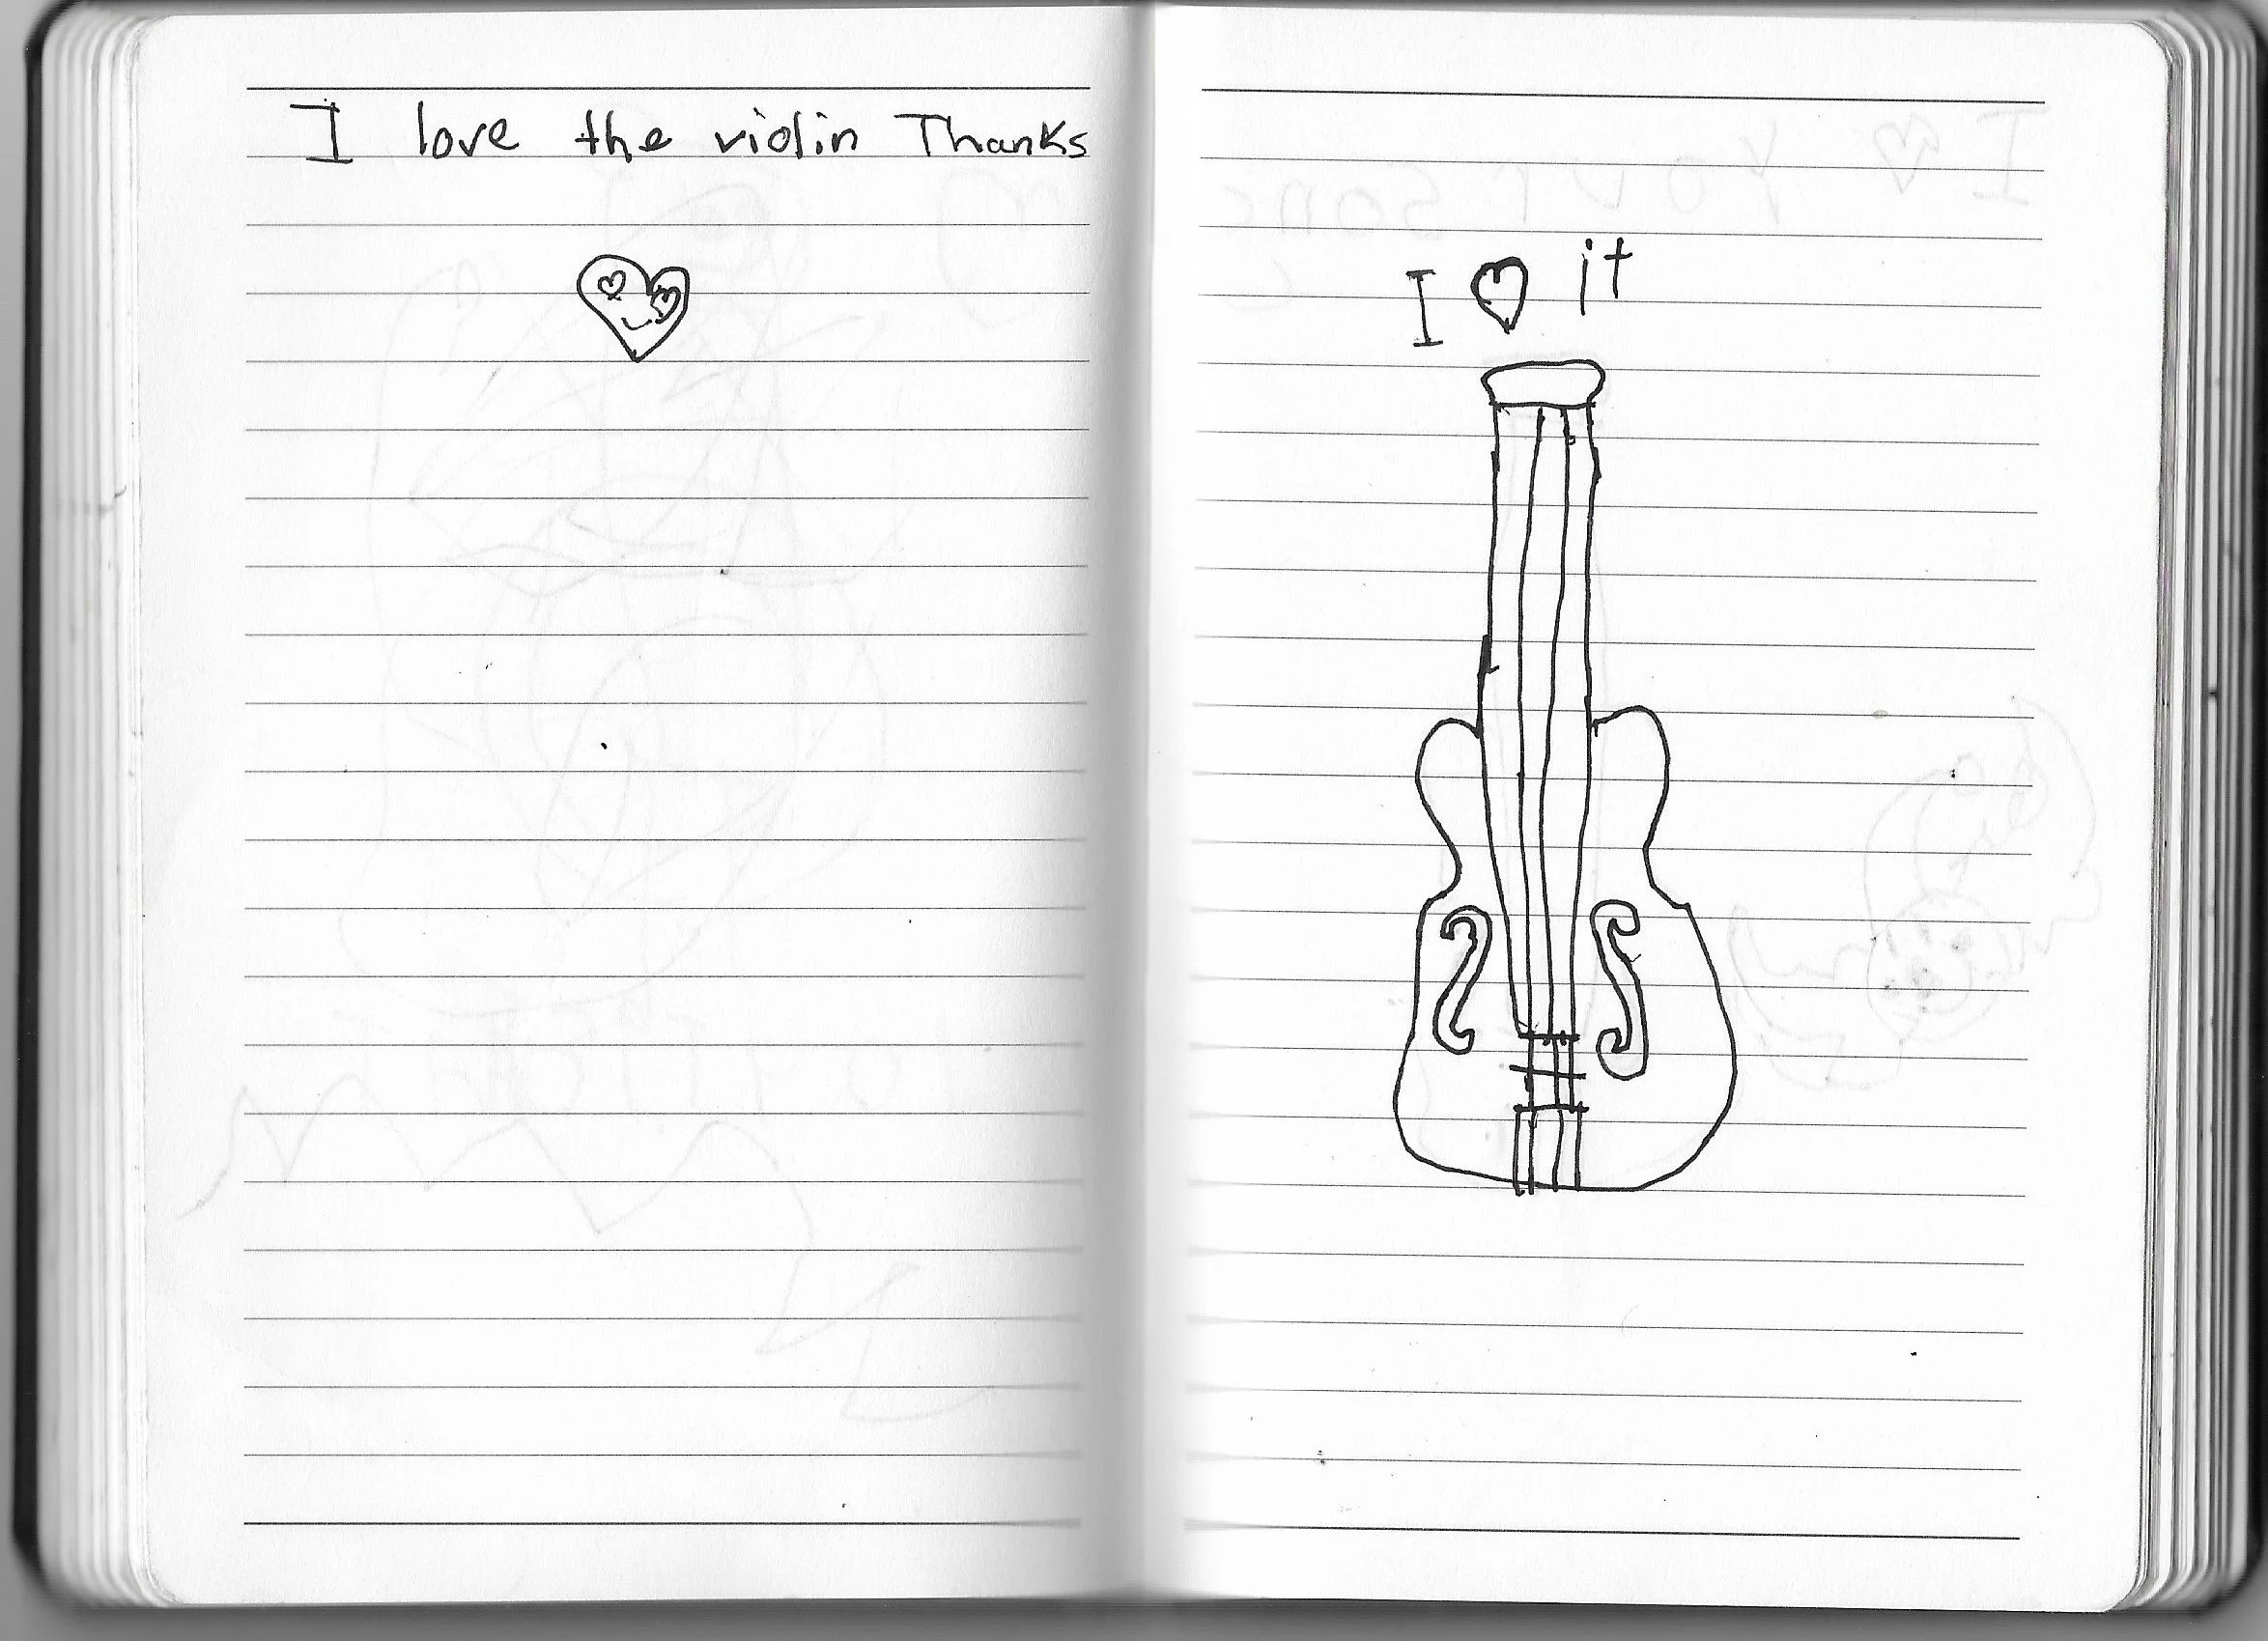 I love the violin Thanks
I ♡ it